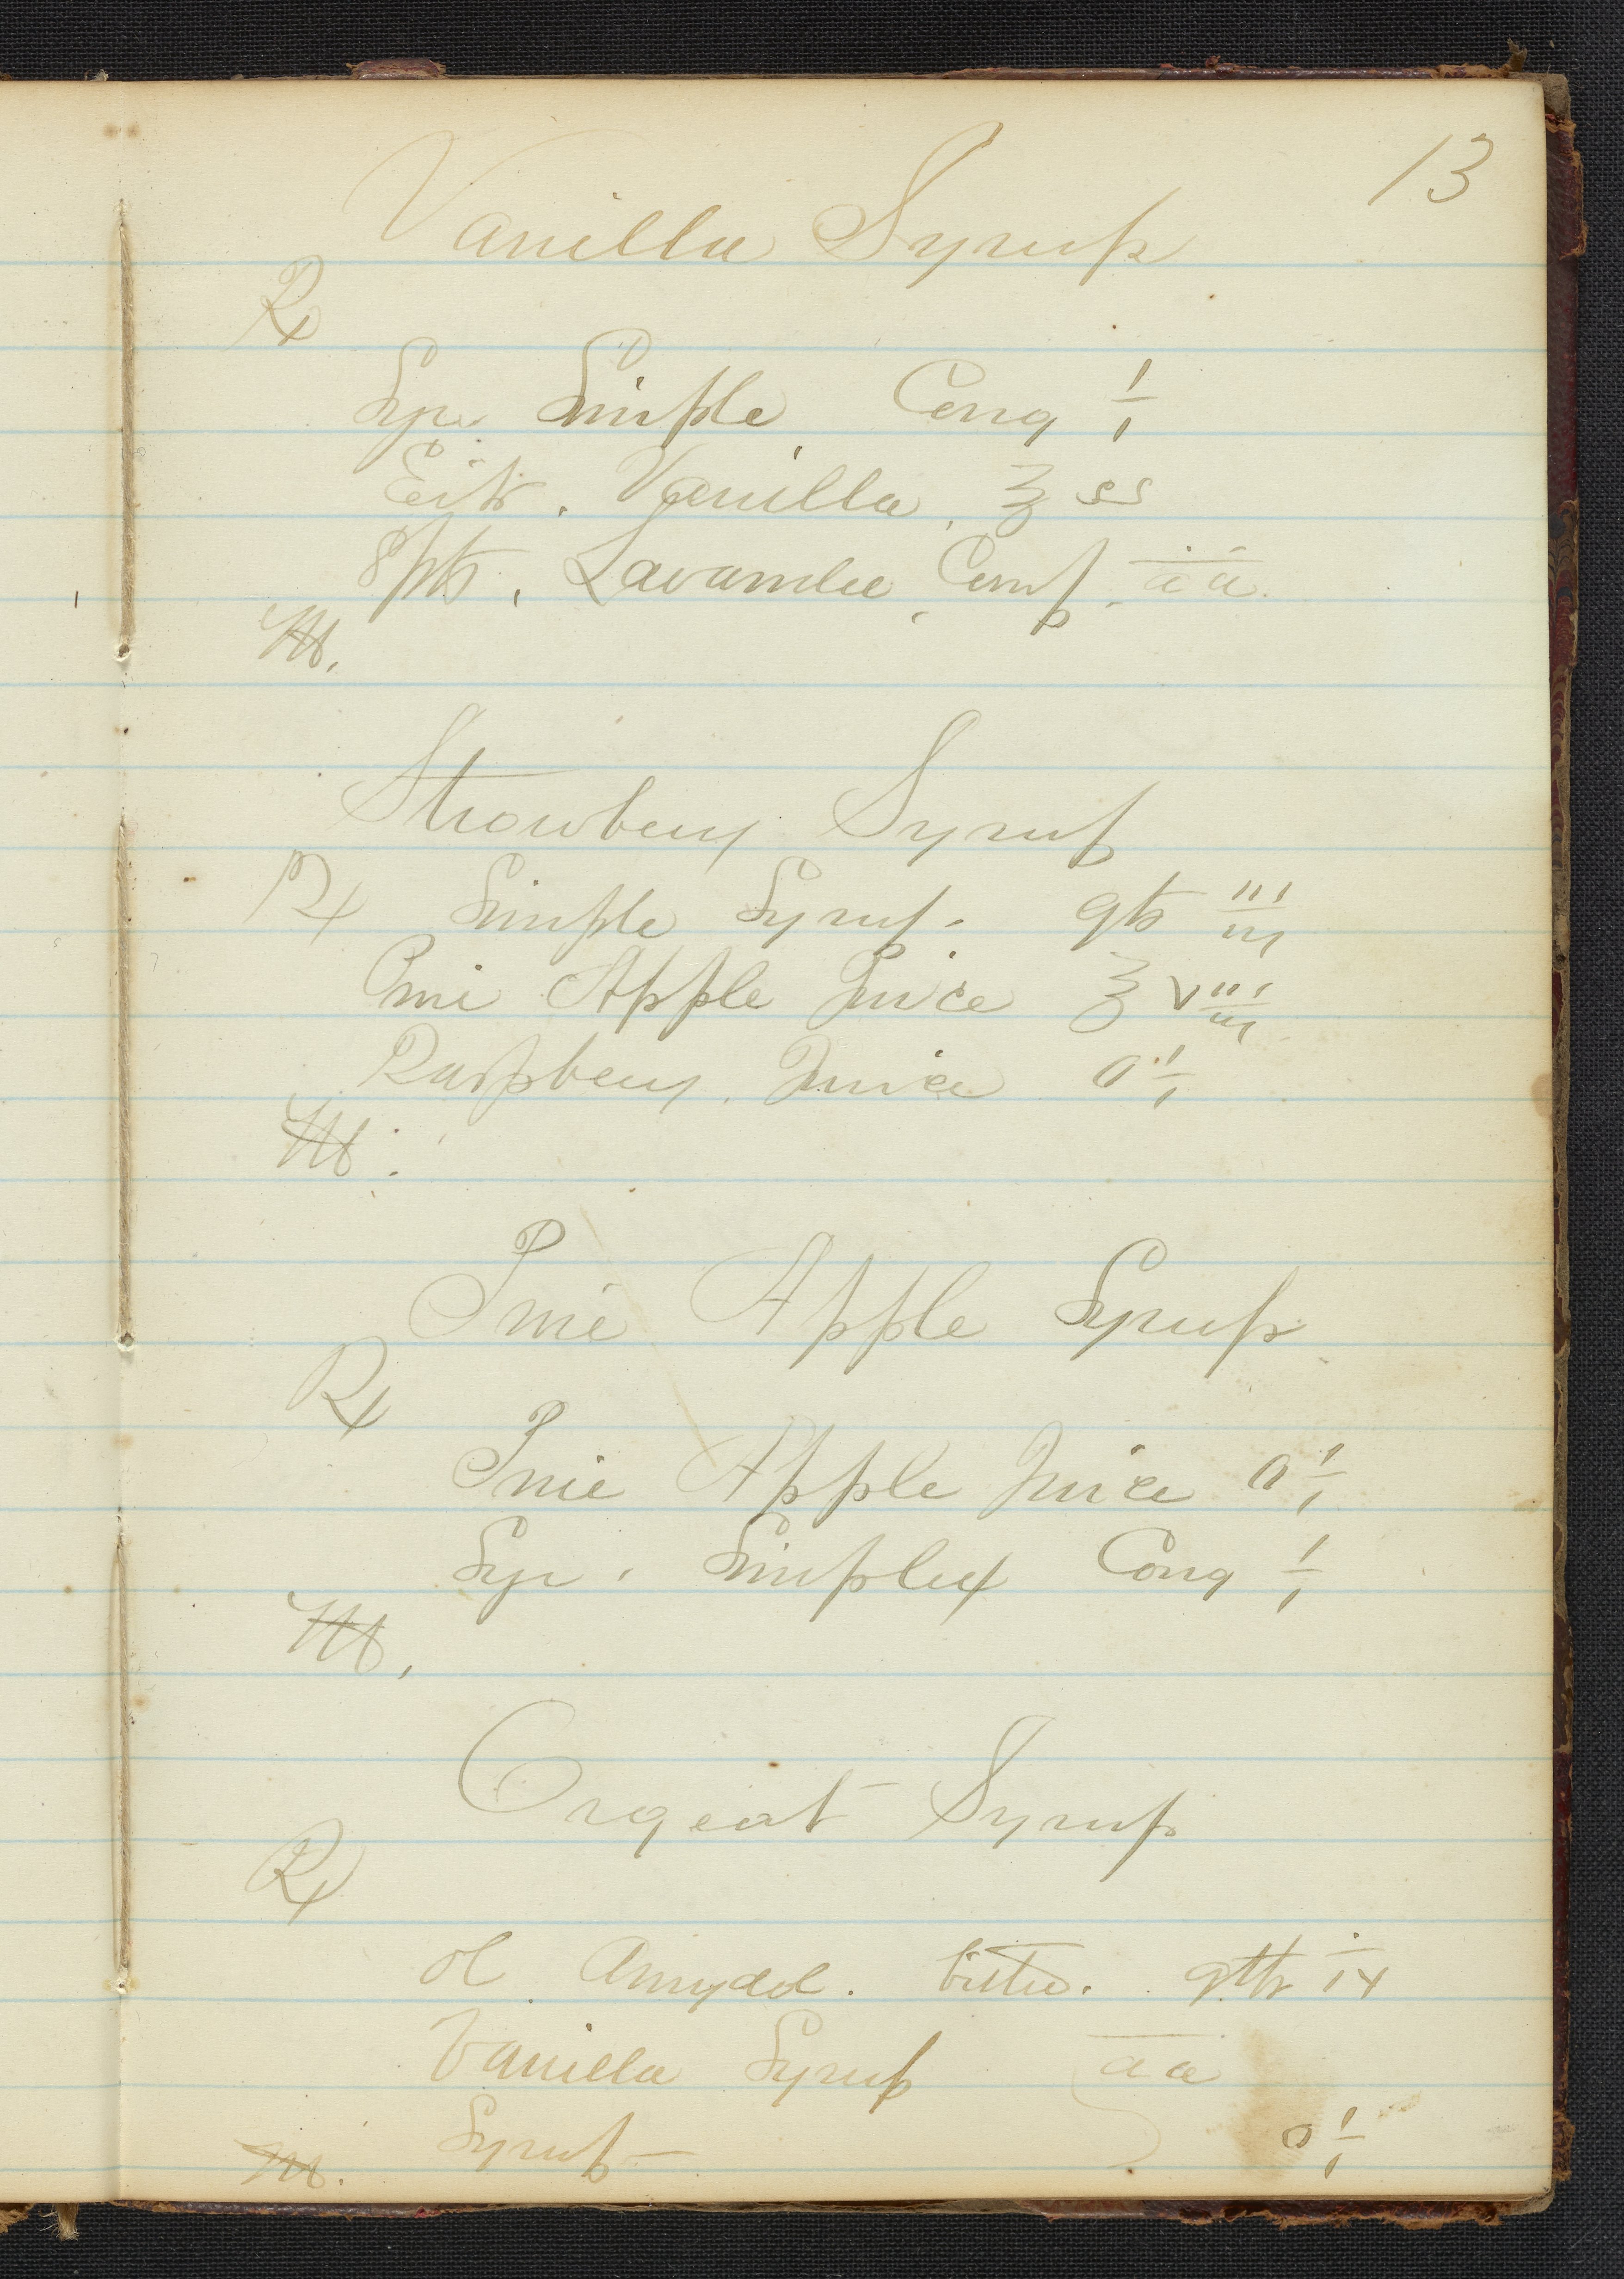 13
Vanilla Syrup
℞
Syr. Simple Cong i
Extr. Vanilla ℥ ss
Spts. Lavandee Comp. āā
M.
Strawberry Syrup
℞ Simple Syrup. qts iii
Pine Apple Juice ℥ viii
Raspberry Juice O i
M.
Pine Apple Syrup
℞
Pine Apple Juice O i
Syr. Simplex Cong i
M.
Orgeat Syrup
℞
Ol Amygdal. bitter. gtts ix
Vanilla Syrup āā
Syrup O i
M.